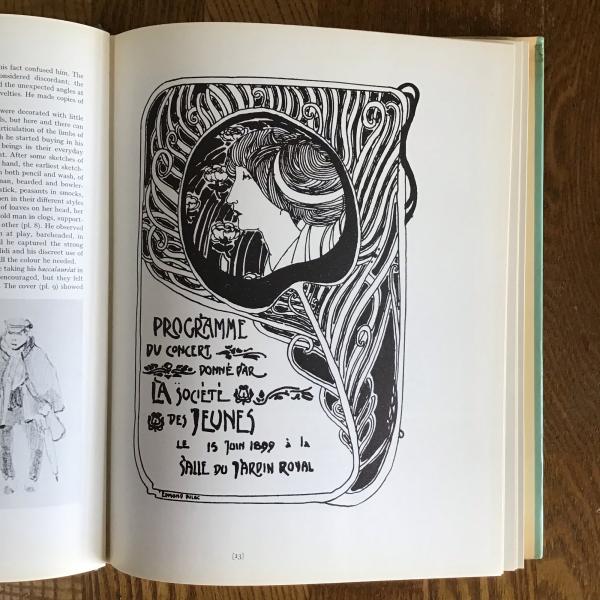 his fact confused him. The
onsidered discordant, the
d the unexpected angles at
velties. He made copies of
were decorated with little
ls, but here and there can
rticulation of the limbs of
h he started buying in his
beings in their everyday
t. After some sketches of
hand, the earliest sketch-
n both pencil and wash, of
man, bearded and bowler-
stick, peasants in smocks,
en in their different styles
of loaves on her head, her
old man in clogs, support-
other (pl. 8). He observed
n at play, bareheaded, in
il he captured the strong
Midi and his discreet use of
all the colour he needed.
taking his baccalauréat in
encouraged, but they felt
. The cover (pl. 9) showed
PROGRAMME
DU CONCERT
DONNÉ PAR
LA SOCIÉTÉ
DES JEUNES
LE 15 JUIN 1899 à la
SALLE DU JARDIN ROYAL
EDMOND DULAC
[23]